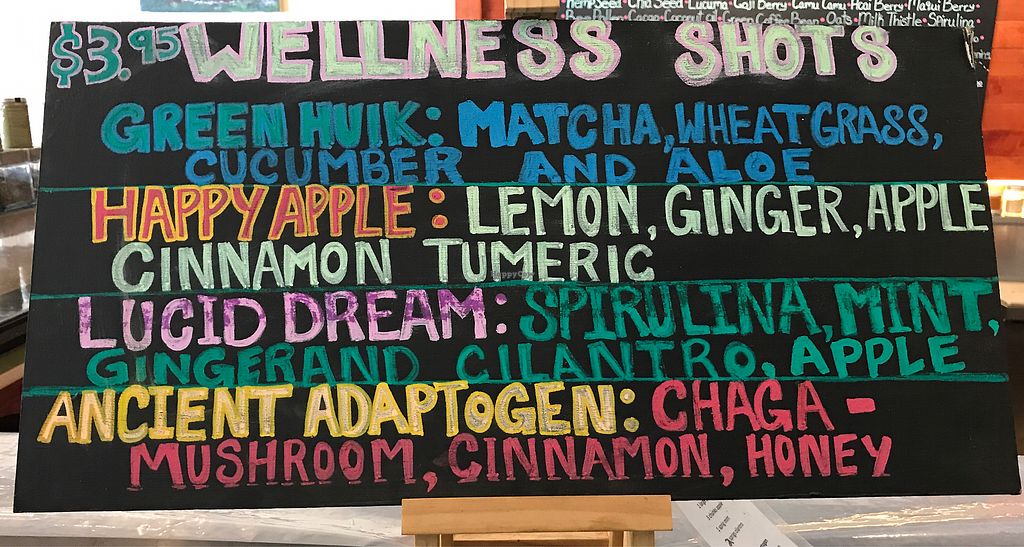 HempSeed Chia Seed Lucuma Goji Berry Camu Camu Acai Berry Maqui Berry
Bee Pollen Cacao Coconut oil Green Coffee Bean Oats Milk Thistle Spirulina
$3.95 WELLNESS SHOTS
GREEN HUIK: MATCHA, WHEAT GRASS,
CUCUMBER AND ALOE
HAPPY APPLE: LEMON, GINGER, APPLE
CINNAMON TUMERIC
LUCID DREAM: SPIRULINA, MINT,
GINGER AND CILANTRO, APPLE
ANCIENT ADAPTOGEN: CHAGA -
MUSHROOM, CINNAMON, HONEY